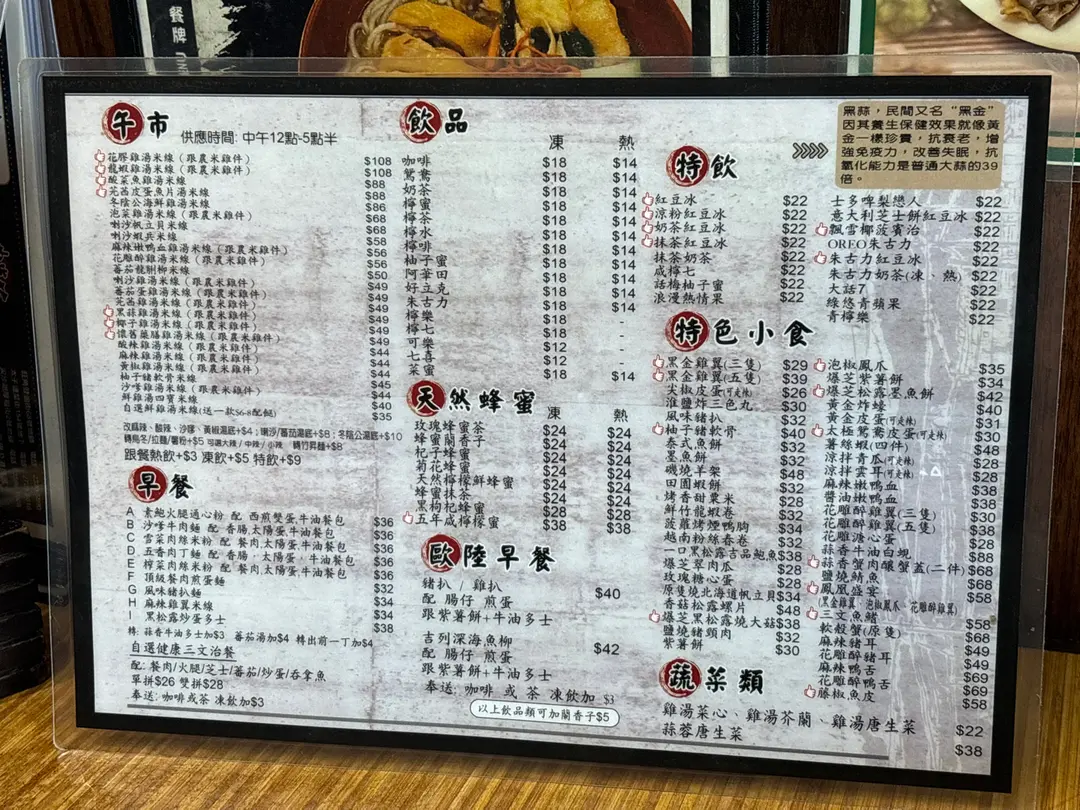 餐牌
午市
供應時間: 中午12點-5點半
花膠雞湯米線 (跟農米雞件)
龍蝦雞湯米線 (跟農米雞件)
酸菜魚雞湯米線
芫茜皮蛋魚片湯米線
冬陰公海鮮雞湯米線
泡菜雞湯米線 (跟農米雞件)
喇沙帆立貝米線
喇沙蝦兵米線
麻辣嫩鴨血雞湯米線 (跟農米雞件)
花雕醉雞湯米線 (跟農米雞件)
蕃茄龍脷柳米線
喇沙雞湯米線 (跟農米雞件)
蕃茄蛋雞湯米線 (跟農米雞件)
芫茜雞湯米線 (跟農米雞件)
黑蒜雞湯米線 (跟農米雞件)
椰子雞湯米線 (跟農米雞件)
懷舊藥膳雞湯米線 (跟農米雞件)
酸辣雞湯米線 (跟農米雞件)
麻辣雞湯米線 (跟農米雞件)
黃椒雞湯米線 (跟農米雞件)
柚子豬軟骨米線
沙嗲雞湯米線 (跟農米雞件)
鮮雞湯四寶米線
自選鮮雞湯米線(送一款$6-8配餸)
$108
$108
$88
$88
$86
$68
$68
$58
$56
$56
$50
$49
$49
$49
$49
$49
$49
$44
$44
$44
$45
$40
$35
改麻辣、酸辣、沙嗲、黃椒湯底+$4 ; 喇沙/蕃茄湯底+$8 ; 冬陰公湯底+$10
轉烏冬/拉麵/薯粉+$5 可選大辣 / 中辣/ 小辣 轉竹昇麵+$8
跟餐熱飲+$3 凍飲+$5 特飲+$9
早餐
A 素鮑火腿通心粉 配 西煎雙蛋,牛油餐包 $36
B 沙嗲牛肉麵 配 香腸,太陽蛋,牛油餐包 $36
C 雪菜肉絲米粉 配 餐肉太陽蛋,牛油餐包 $36
D 五香肉丁麵 配 香腸、太陽蛋、牛油餐包 $36
E 榨菜肉絲米粉 配 餐肉,太陽蛋,牛油餐包 $36
F 頂級餐肉煎蛋麵 $32
G 風味豬扒麵 $34
H 麻辣雞翼米線 $34
I 黑松露炒蛋多士 $38
轉: 蒜香牛油多士加$3 蕃茄湯加$4 轉出前一丁加$4
自選健康三文治餐
配: 餐肉/火腿/芝士/蕃茄/炒蛋/吞拿魚
單拼$26 雙拼$28
奉送: 咖啡 或 茶 凍飲加$3
飲品
凍 熱
咖啡 $18 $14
鴛鴦 $18 $14
奶茶 $18 $14
檸蜜 $18 $14
檸茶 $18 $14
檸水 $18 $14
檸啡 $18 $14
柚子蜜 $18 $14
阿華田 $18 $14
好立克 $18 $14
朱古力 $18 $14
檸樂 $18 -
檸七 $18 -
可樂 $12 -
七喜 $12 -
菜蜜 $18 $14
天然蜂蜜
凍 熱
玫瑰蜂蜜茶 $24 $24
蜂蜜蘭香子 $24 $24
杞子蜂蜜 $24 $24
菊花蜂蜜 $24 $24
天然檸檬鮮蜂蜜 $24 $24
蜂蜜抹茶 $24 $24
黑枸杞蜂蜜 $28 $28
五年咸檸檬蜜 $38 $38
歐陸早餐
豬扒 / 雞扒
配 腸仔 煎蛋
跟紫薯餅+牛油多士
$40
吉列深海魚柳
配 腸仔 煎蛋
跟紫薯餅+牛油多士
$42
奉送: 咖啡 或 茶 凍飲加 $3
以上飲品類可加蘭香子$5
特飲
黑蒜，民間又名“黑金”
因其養生保健效果就像黃
金一樣珍貴，抗衰老，增
強免疫力，改善失眠，抗
氧化能力是普通大蒜的39
倍。
紅豆冰 $22
涼粉紅豆冰 $22
奶茶紅豆冰 $22
抹茶紅豆冰 $22
抹茶奶茶 $22
咸檸七 $22
話梅柚子蜜 $22
浪漫熱情果 $22
士多啤梨戀人 $22
意大利芝士餅紅豆冰 $22
飄雪椰菠賓治 $22
OREO朱古力 $22
朱古力紅豆冰 $22
朱古力奶茶(凍、熱) $22
大話7 $22
綠悠青蘋果 $22
青檸樂 $22
特色小食
黑金雞翼(三隻) $29
黑金雞翼(五隻) $39
尖椒皮蛋(可走辣) $26
淮鹽炸三色丸 $30
風味豬扒 $32
柚子豬軟骨 $40
泰式魚餅 $32
墨魚餅 $30
磯燒羊架 $48
田園蝦餅 $32
烤香甜粟米 $28
鮮竹龍蝦卷 $32
菠蘿烤煙鴨胸 $34
越南粉絲春卷 $32
一口黑松露吉品鮑魚 $38
爆芝翠肉瓜 $28
玫瑰糖心蛋 $28
原隻燒北海道帆立貝 $34
香菇松露螺片 $48
爆芝黑松露燒大菇 $38
鹽燒豬頸肉 $32
紫薯餅 $30
泡椒鳳爪 $35
爆芝紫薯餅 $34
爆芝松露墨魚餅 $42
黃金炸蠔 $40
黃金皮蛋(可走辣) $31
太極鴛鴦皮蛋(可走辣) $30
薯絲蝦(四件) $48
涼拌青瓜(可走辣) $28
涼拌雲耳(可走辣) $28
麻辣嫩鴨血 $38
醬油嫩鴨血 $38
花雕醉雞翼(三隻) $30
花雕醉雞翼(五隻) $38
花雕溏心蛋 $28
蒜香牛油白蜆 $88
蒜香蟹肉釀蟹蓋(二件) $68
鹽燒鯖魚 $68
鳳凰盛宴 $58
(黑金雞翼、泡椒鳳爪、花雕醉雞翼)
三文魚鰭 $58
軟殼蟹(原隻) $68
麻辣豬耳 $49
花雕醉豬耳 $49
麻辣鴨舌 $69
花雕醉鴨舌 $69
藤椒魚皮 $58
蔬菜類
雞湯菜心、雞湯芥蘭、雞湯唐生菜 $22
蒜蓉唐生菜 $38